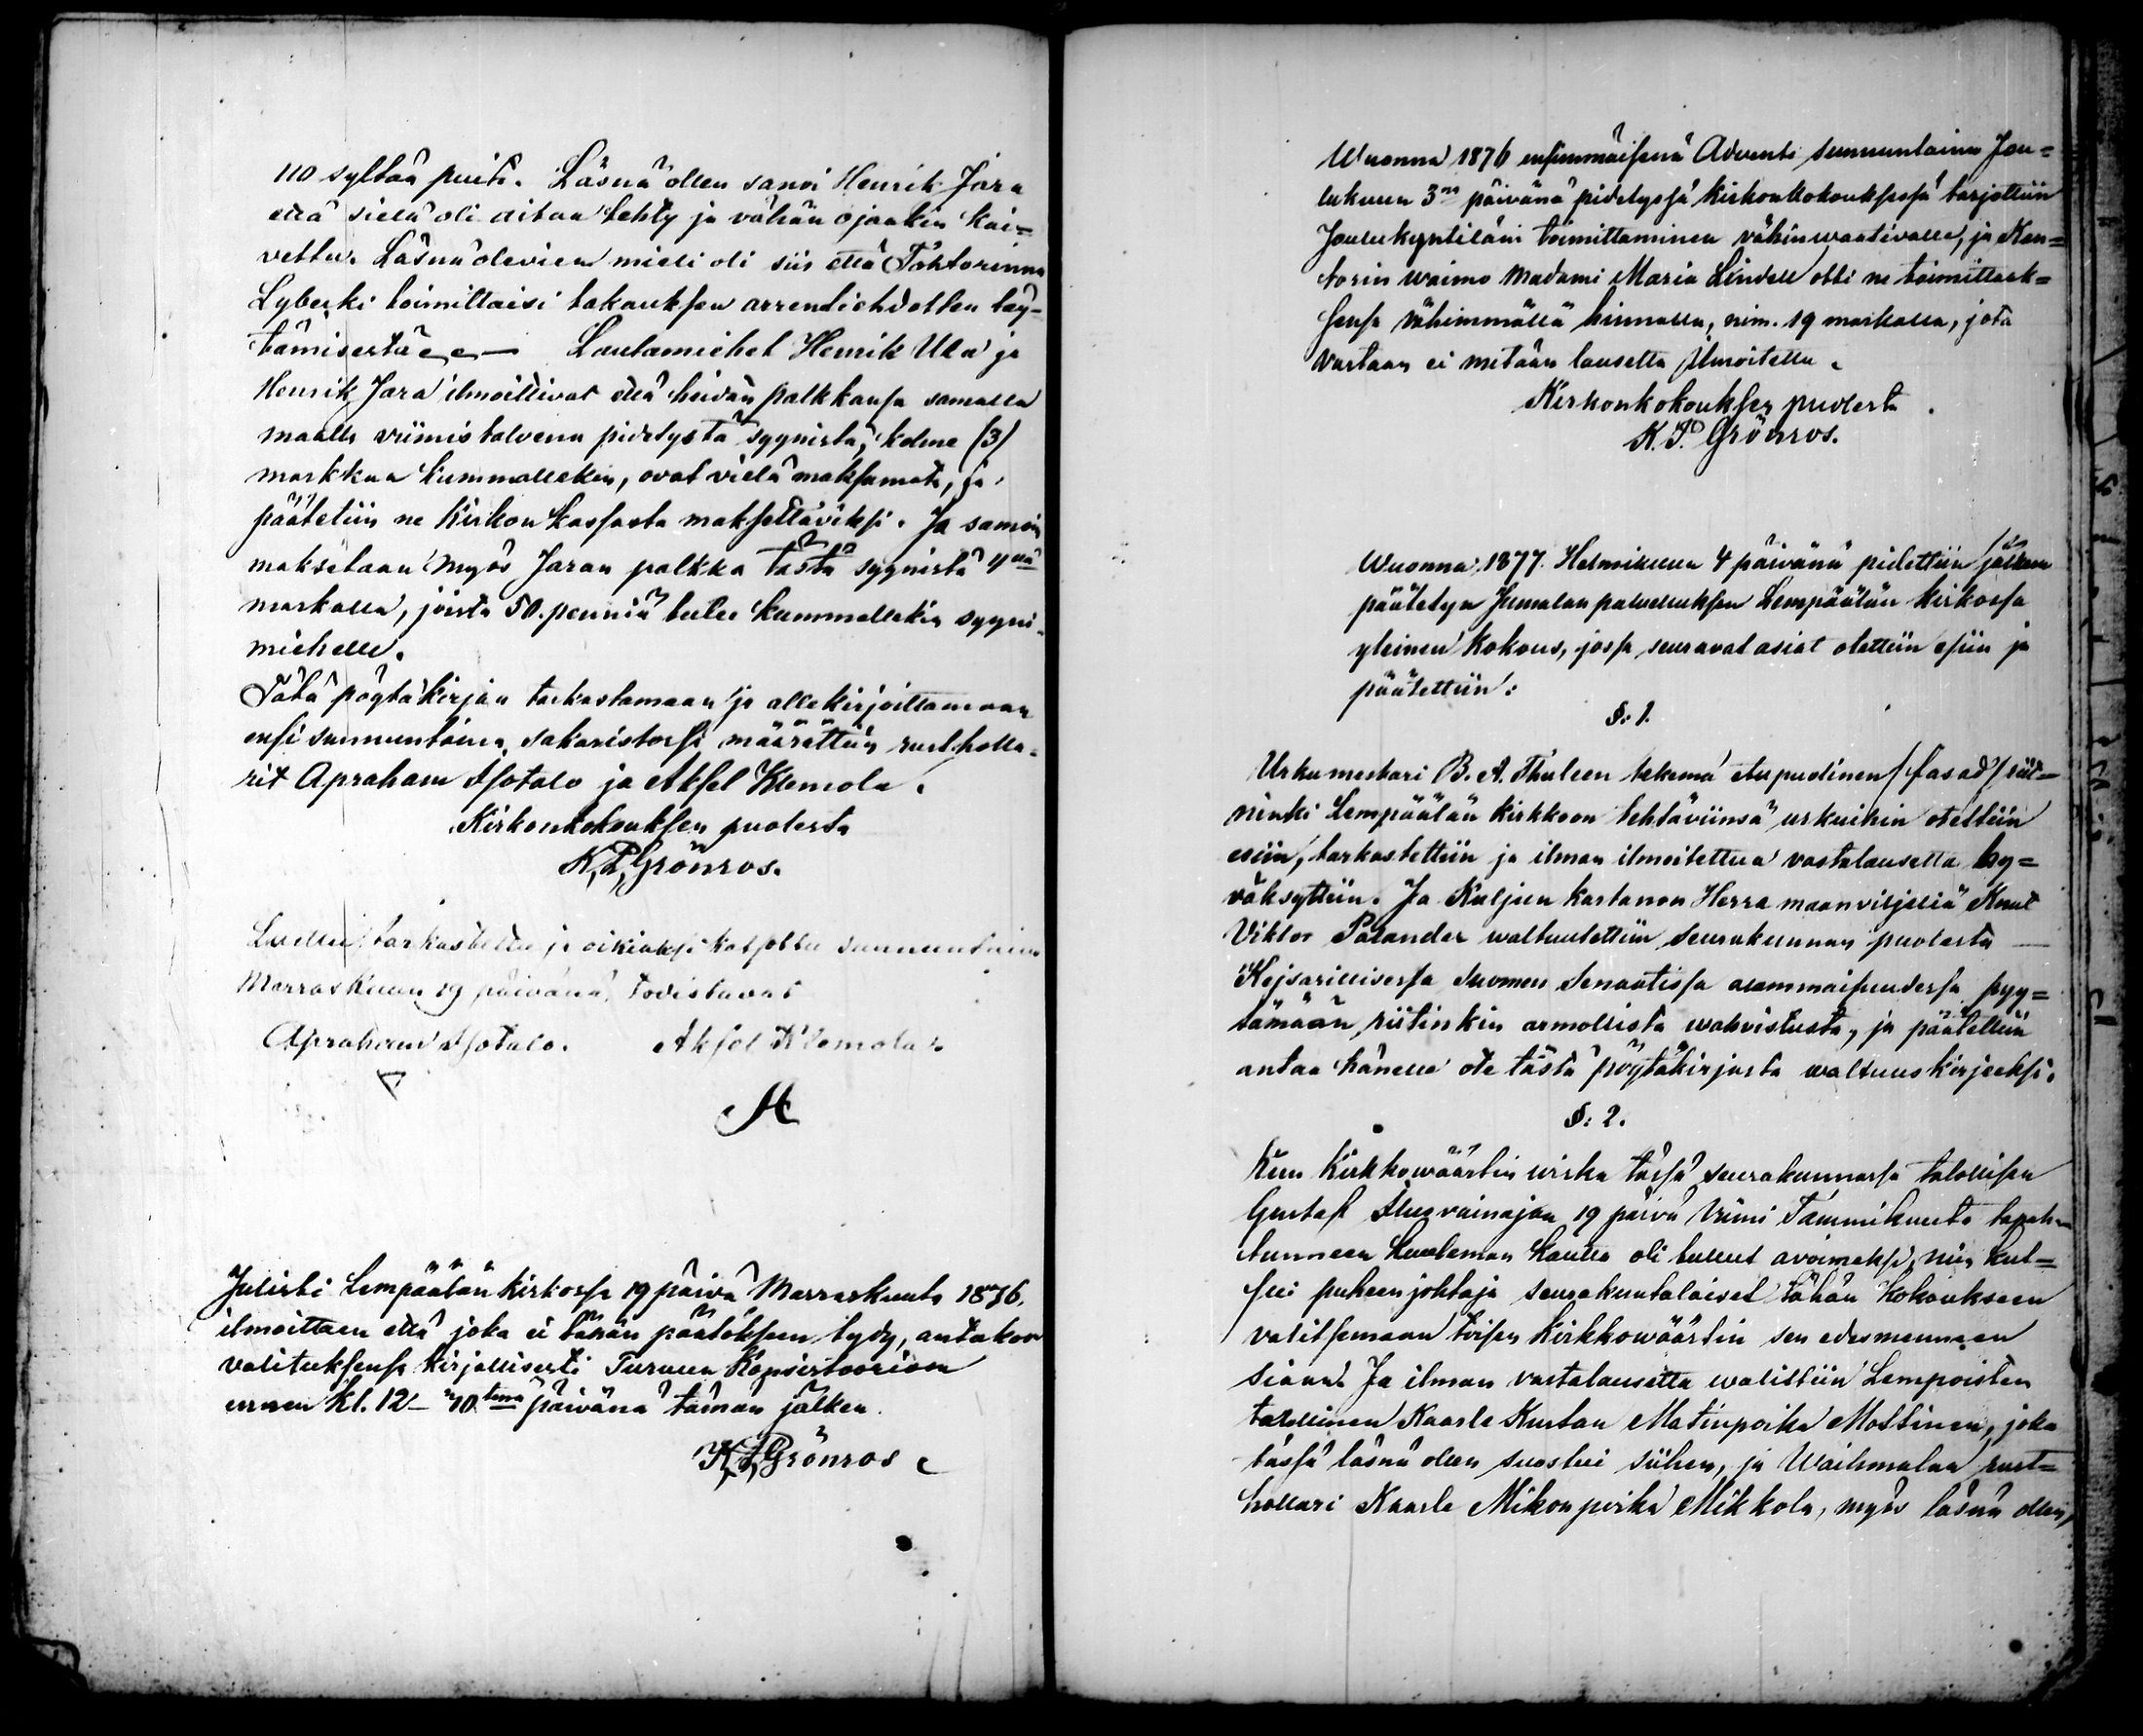 110 syltää puita. Läsnä ollen sanoi Henrik Jara
että siellä oli aitaa tehty ja vähän ojaakin kai=
vettu. Läsnä olevien mieli oli siis että Tohtorinna
Lyberki toimittaisi takauksen arrentiehdotten täy=
tämisestä. — Lautamiehet Henrik Ula ja
Henrik Jara ilmoittivat että heidän palkkansa samalla
maalla viimis talvena pidetystä syynistä, kolme (3)
markkaa kummallekin, ovat vielä maksamata, ja
päätetiin ne Kirkon kassasta maksettaviksi. Ja samoin
maksetaan myös Jaran palkka tästä syynistä
markalla, joista 50. penniä tulee kummallekin syyni=
miehelle.
Tätä pöytäkirjaa tarkastamaan ja allekirjoittamaan
ensi sunnuntaina sakaristossa määrättiin rustholla=
rit Apraham Isotalo ja Aksel Klemola.
Kirkonkokouksen puolesta
K. P. Grönros.
Luettu, tarkastettu ja oikiaksi katsottu sunnuntaina
Marraskuun 19 päivänä, Todistavat
Apraham Isotalo. Aksel Klemola.
Julisti Lempäälän kirkossa 19 päivä Marraskuuta 1876,
ilmoittaen että joka ei tähän päätökseen tydy, antakoon
valituksensa kirjallisesti Turuun Konsistoorioon
ennen Kl. 12 30tenä päivänä tämän jälken.
K. P. Grönros
Wuonna 1876 ensimmäisenä Adventi sunnuntaina Jou=
lukuun 3na päivänä pidetyssä kirkonkokouksessa tarjottiin
Joulukyntiläin toimittaminen vähinwaativalle, ja Kan=
torin waimo Madami Maria Lindell otti ne toimittaak=
sensa vähimmällä hinnalla, nim. 19 markalla, jota
vastaan ei mitään lausetta ilmoitettu.
Kirkonkokouksen puolesta
K. P. Grönros.
Wuonna 1877 Helmikuun 4 päivänä pidettiin jälkeen
päätetyn Jumalan palveluksen Lempäälän kirkossa
yleinen kokous, jossa seuravat asiat otettiin esiin ja
päätettiin:
§: 1.
Urkumestari B. A. Thuleen tekemä etupuolinen (fasad) riit=
ninki Lempäälän kirkkoon tehtäviinsä urkuihin otettiin
esiin, tarkastettiin ja ilman ilmoitettua vastalausetta hy=
väksyttiin. Ja Kuljun kartanon Herra maanviljeliä Knut
Viktor Palander waltuutettiin seurakunnan puolesta —
Kejsarillisessa Suomen Senaatissa alammaisuudessa pyy=
tämään riitinkin armollista wahvistusta, ja päätettiin
antaa hänelle ote tästä pöytäkirjasta waltuuskirjeeksi.
§: 2.
Kun Kirkkowäärtin wirka tässä seurakunnassa talollisen
Gustaf vainajan 19 päivä viimi Tammikuuta tapah=
tunneen kuoleman kautta oli tullut avoimeksi, niin kut=
sui puheenjohtaja seurakuntalaiset tähän kokoukseen
valitsemaan toisen Kirkkowäärtin sen edesmenneen
siaan. Ja ilman vastalausetta walittiin Lempoisten
talollinen Kaarle Kustaa Matinpoika Mottinen, joka
tässä läsnä ollen suostui siihen, ja Waihmalan rust=
hollari Kaarle Mikonpoika Mikkola, myös läsnä ollen,